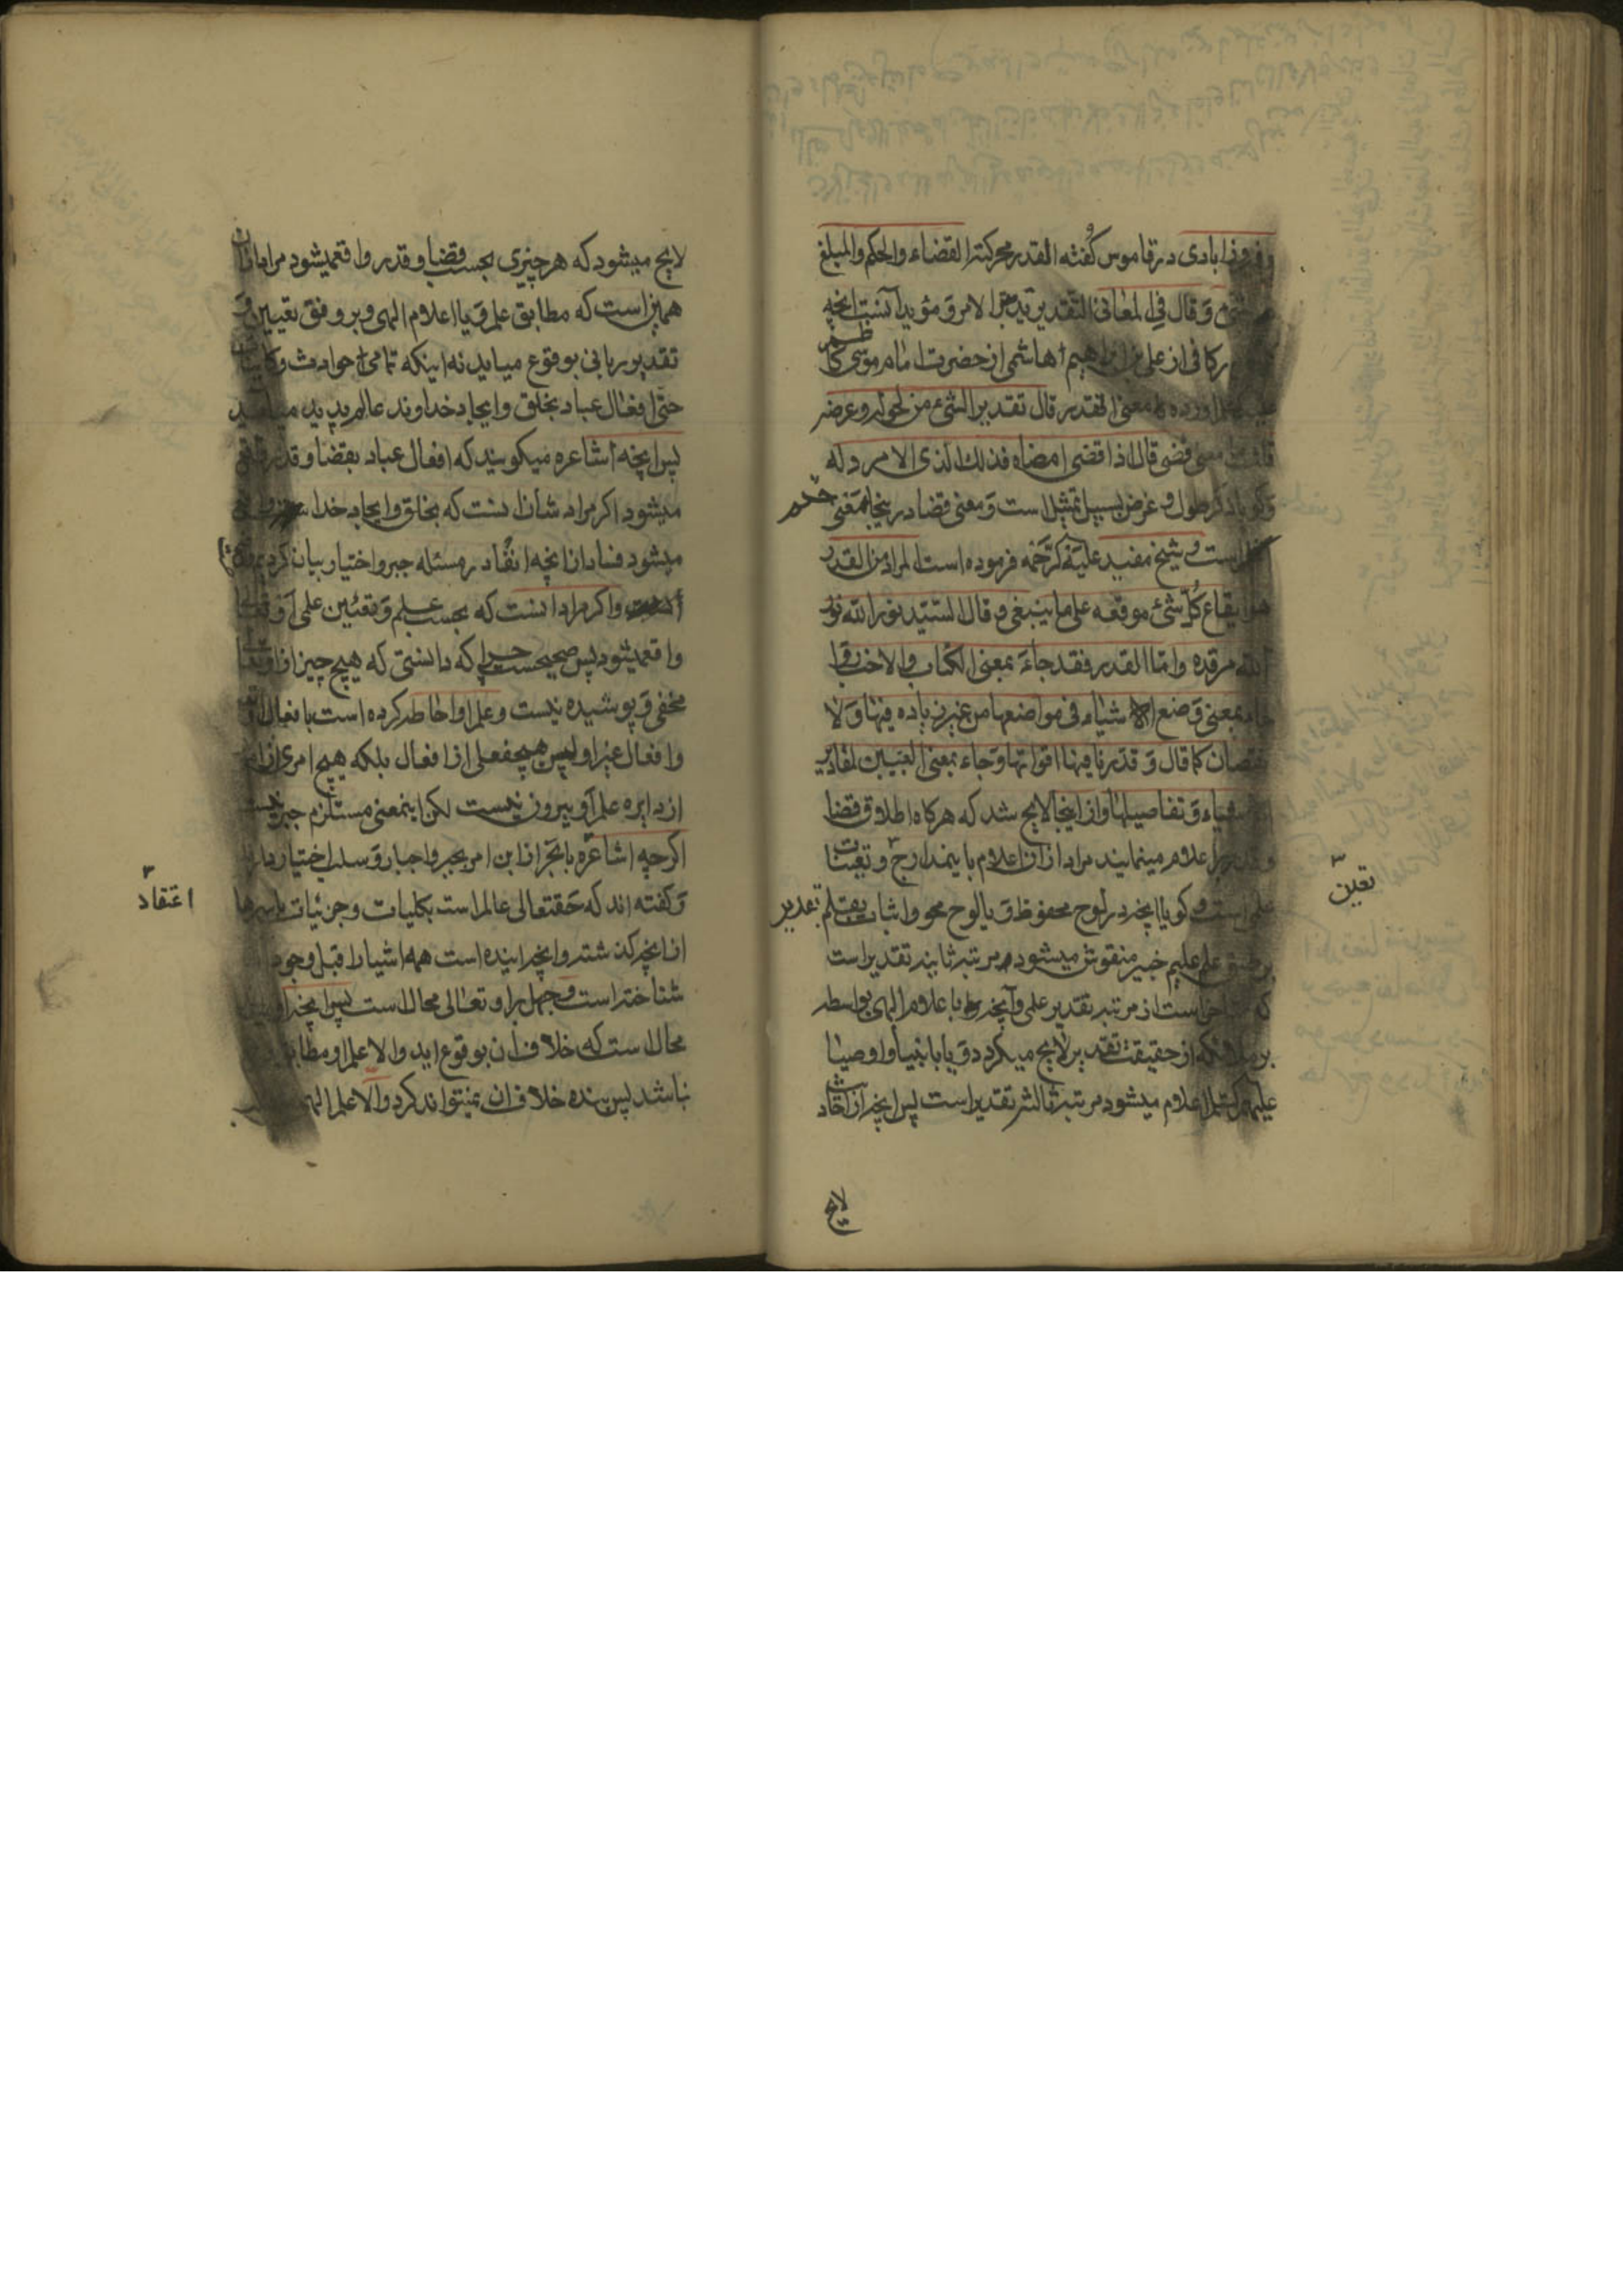 و فیروزابادی در قاموس گفته القدر محرکة القضاء والحکم والمبلغ
و قال فی المعانی التقدیر تدبیر الامر و مؤید آنست آنچه
در کافی از علی بن ابراهیم الهاشمی از حضرت امام موسی کاظم
آورده معنی القدر قال تقدیر الشیء من طوله و عرضه
قلت فما معنی قضی قال اذا قضی امضاه فذلک الذی لا مرد له
و گویا ذکر طول و عرض بسبیل تمثیل است و معنی قضا درینجا بمعنی حتم
است و شیخ مفید علیه الرحمه فرموده است المراد من القدر
هو ایقاع کل شیء موقعه علی ما ینبغی و قال السید نور الله نور
الله مرقده و اما القدر فقد جاء بمعنی الکتاب والاخبار و
جاء بمعنی وضع الاشیاء فی مواضعها من غیر زیاده فیها و لا
نقصان کما قال و قدر فیها اقواتها و جاء بمعنی التبیین لمقادیر
الاشیاء و تفاصیلها و از اینجا لایح شد که هرگاه اطلاق قضا
و قدر بر اعلام مینمایند مراد از آن اعلام باینمدارج و تعینات
علمی است و گویا آنچه در لوح محفوظ و یا لوح محو و اثبات بقلم تقدیر
بر طبق علم علیم خبیر منقوش میشود مرتبه ثانیه تقدیر است
که است از مرتبه تقدیر علمی و آنچه با علام الهی بواسطه
بر ملائکه از حقیقت تقدیر لایح میگردد و یا بانبیا و اوصیا
علیهم اعلام میشود مرتبه ثالثه تقدیر است پس آنچه از آن
تعین
لایح
لایح میشود که هر چیزی بحسب قضا و قدر واقع میشود مراد از آن
همین است که مطابق علم و یا اعلام الهی و بر وفق تعیین و
تقدیر ربانی بوقوع میاید نه اینکه تمامی حوادث و کاینات
حتی افعال عباد بخلق و ایجاد خداوند عالم پدید میاید
پس آنچه اشاعره میگویند که افعال عباد بقضا و قدر واقع
میشود اگر مراد شان انست که بخلق و ایجاد خدا
میشود فساد آن از آنچه انفا در مسئله جبر و اختیار بیان کردیم
و اگر مراد انست که بحسب علم و تعیین علمی او
واقع میشود پس صحیحست چرا که دانستی که هیچ چیز از او تعالی
مخفی و پوشیده نیست و علم او احاطه کرده است بافعال او
و افعال غیر او پس هیچ فعلی از افعال بلکه هیچ امری از امور
از دایره علم او بیرون نیست لکن اینمعنی مستلزم جبر نیست
اگرچه اشاعره از این امر بجبر و اجبار و سلب اختیار
و گفته اند که حقتعالی عالم است بکلیات و جزئیات باسرها
از آنچه گذشته و آنچه آینده است همه اشیا را قبل وجود
شناخته است و جهل بر او تعالی محال است پس آنچه او
محال است که خلاف آن بوقوع اید والا علم او مطابق
نباشد پس بنده خلاف آن نمیتواند کرد والا علم الهی
اعتقاد